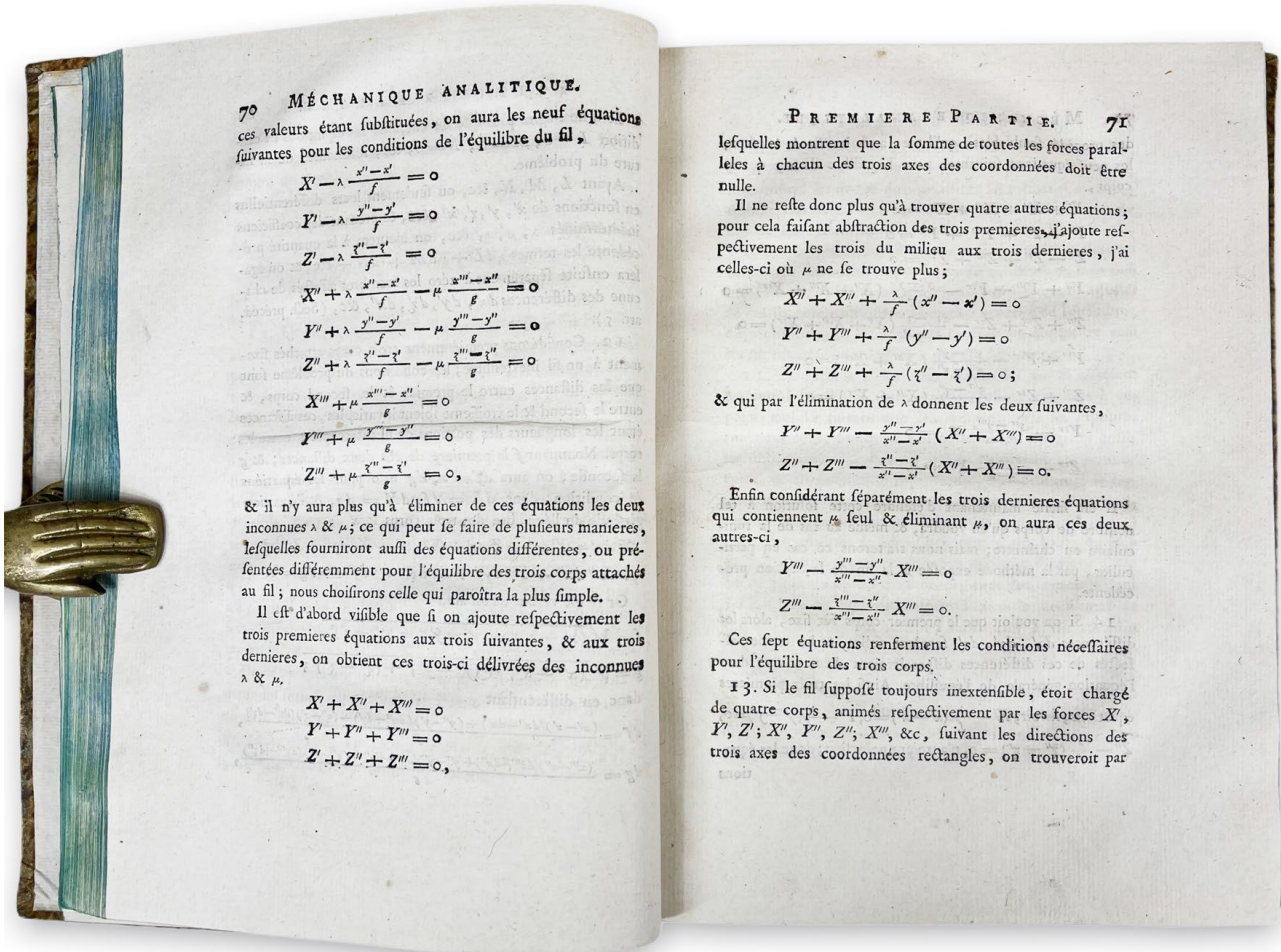 70 MÉCHANIQUE ANALITIQUE.
ces valeurs étant ſubſtituées, on aura les neuf équations
ſuivantes pour les conditions de l'équilibre du fil,
X′ − λ (x″ − x′)/f = 0
Y′ − λ (y″ − y′)/f = 0
Z′ − λ (z″ − z′)/f = 0
X″ + λ (x″ − x′)/f − μ (x‴ − x″)/g = 0
Y″ + λ (y″ − y′)/f − μ (y‴ − y″)/g = 0
Z″ + λ (z″ − z′)/f − μ (z‴ − z″)/g = 0
X‴ + μ (x‴ − x″)/g = 0
Y‴ + μ (y‴ − y″)/g = 0
Z‴ + μ (z‴ − z″)/g = 0,
& il n'y aura plus qu'à éliminer de ces équations les deux
inconnues λ & μ; ce qui peut ſe faire de pluſieurs manieres,
leſquelles fourniront auſſi des équations différentes, ou pré-
ſentées différemment pour l'équilibre des trois corps attachés
au fil; nous choiſirons celle qui paroîtra la plus ſimple.
Il eſt d'abord viſible que ſi on ajoute reſpectivement les
trois premieres équations aux trois ſuivantes, & aux trois
dernieres, on obtient ces trois-ci délivrées des inconnues
λ & μ,
X′ + X″ + X‴ = 0
Y′ + Y″ + Y‴ = 0
Z′ + Z″ + Z‴ = 0,
PREMIERE PARTIE. 71
leſquelles montrent que la ſomme de toutes les forces paral-
leles à chacun des trois axes des coordonnées doit être
nulle.
Il ne reſte donc plus qu'à trouver quatre autres équations;
pour cela faiſant abſtraction des trois premieres, j'ajoute reſ-
pectivement les trois du milieu aux trois dernieres, j'ai
celles-ci où μ ne ſe trouve plus;
X″ + X‴ + λ/f (x″ − x′) = 0
Y″ + Y‴ + λ/f (y″ − y′) = 0
Z″ + Z‴ + λ/f (z″ − z′) = 0;
& qui par l'élimination de λ donnent les deux ſuivantes,
Y″ + Y‴ − (y″ − y′)/(x″ − x′) (X″ + X‴) = 0
Z″ + Z‴ − (z″ − z′)/(x″ − x′) (X″ + X‴) = 0.
Enfin conſidérant ſéparément les trois dernieres équations
qui contiennent μ ſeul & éliminant μ, on aura ces deux
autres-ci,
Y‴ − (y‴ − y″)/(x‴ − x″) X‴ = 0
Z‴ − (z‴ − z″)/(x‴ − x″) X‴ = 0.
Ces ſept équations renferment les conditions néceſſaires
pour l'équilibre des trois corps.
13. Si le fil ſuppoſé toujours inextenſible, étoit chargé
de quatre corps, animés reſpectivement par les forces X′,
Y′, Z′; X″, Y″, Z″; X‴, &c, ſuivant les directions des
trois axes des coordonnées rectangles, on trouveroit par